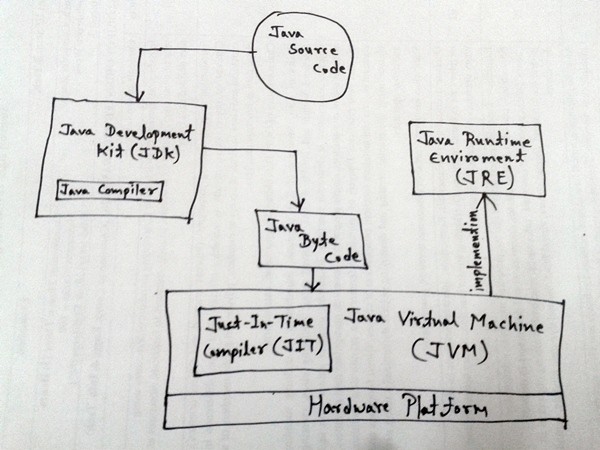 Java
Source
Code
Java Development
Kit (JDK)
Java Compiler
Java Runtime
Enviroment
(JRE)
Java
Byte
Code
implemention
Just-In-Time
Compiler (JIT)
Java Virtual Machine
(JVM)
Hardware Platform